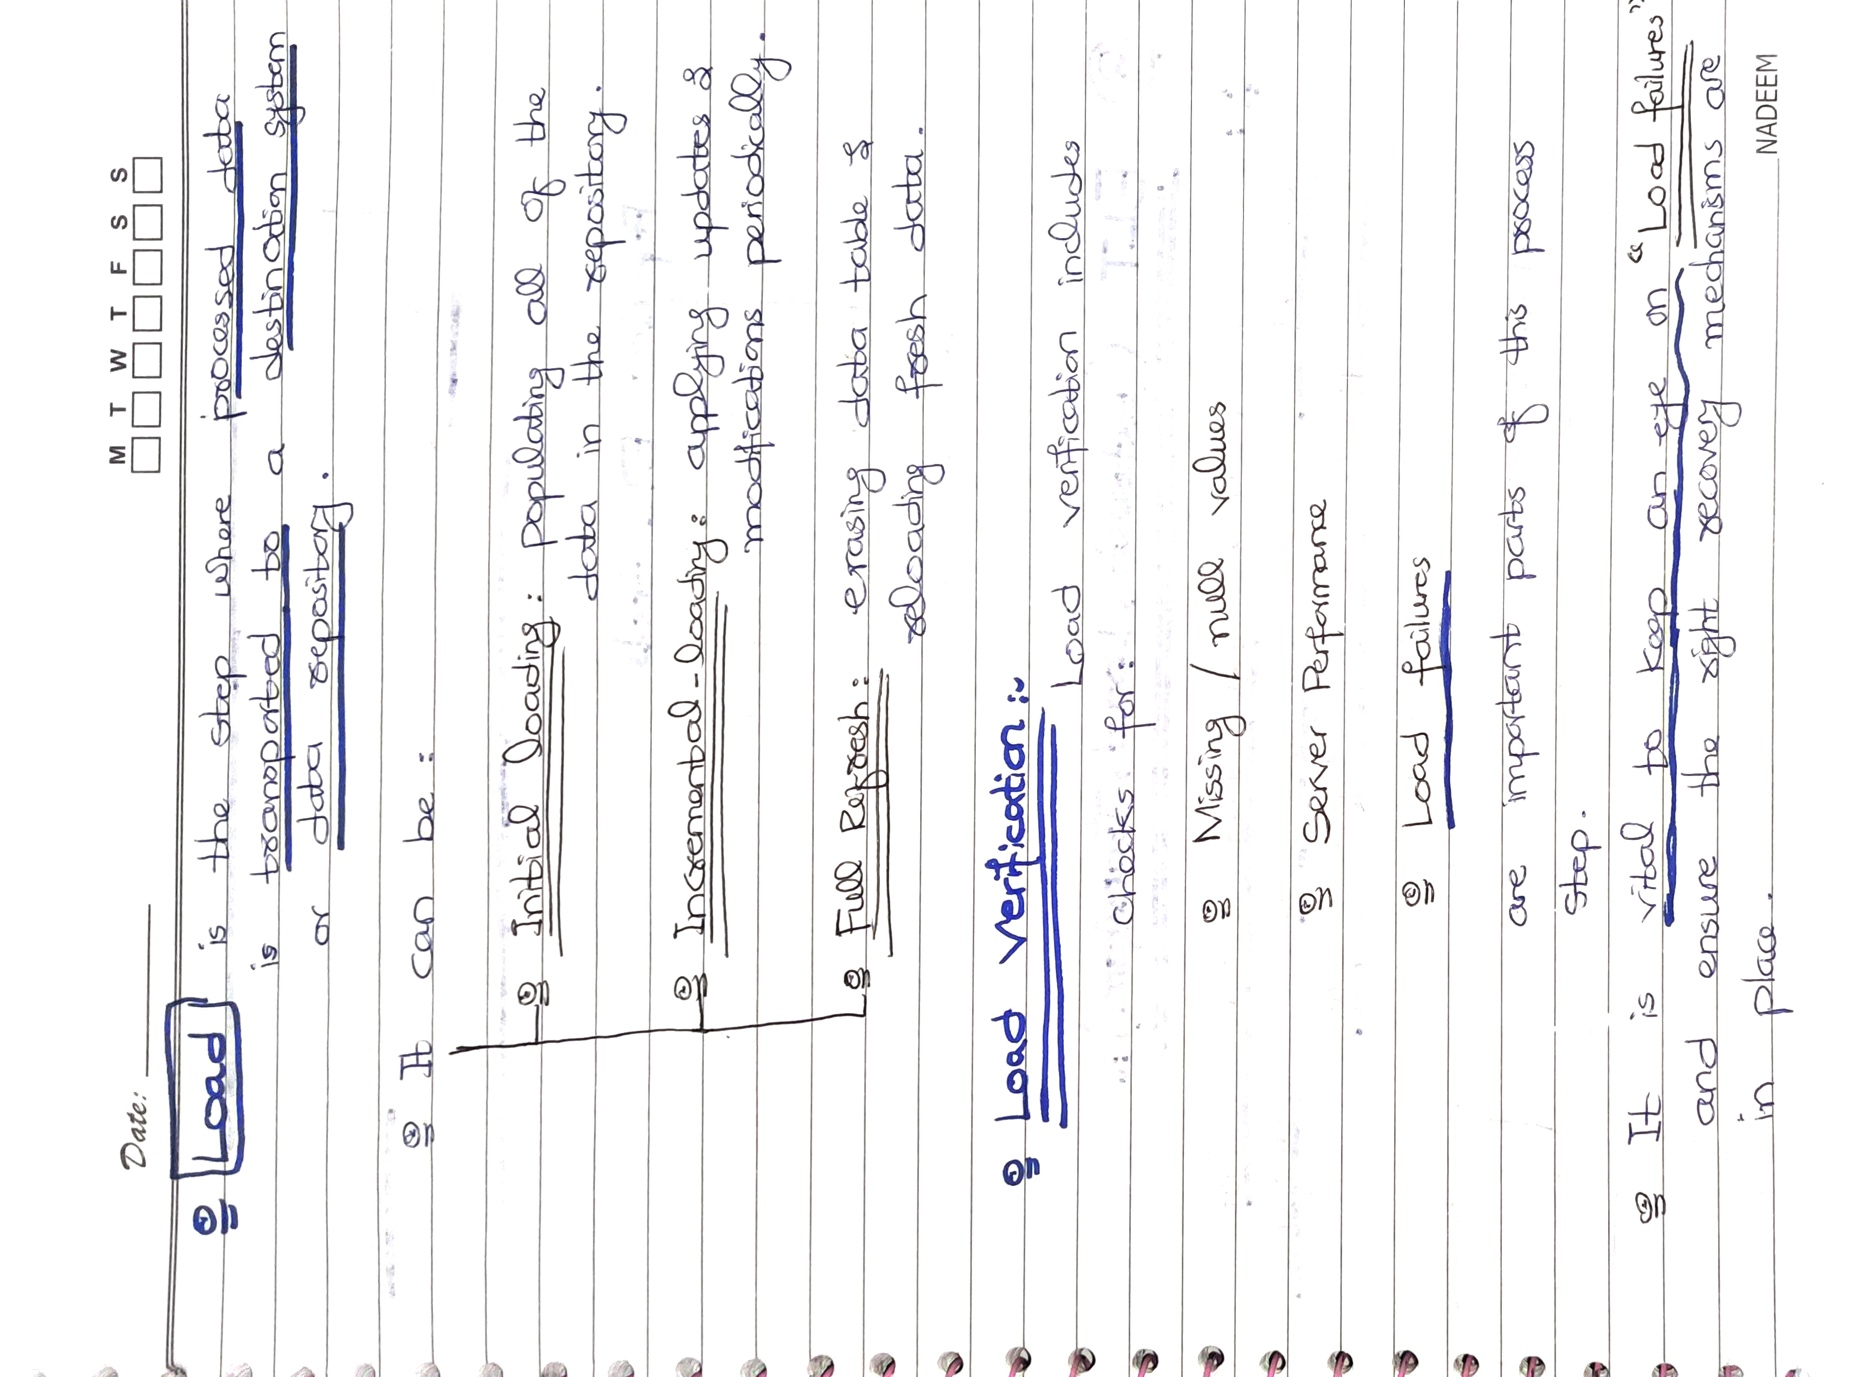 Date:
M T W T F S S
Load is the step where processed data
is transported to a destination system
or data repository.
It can be:
Initial loading: populating all of the
data in the repository.
Incremental-loading: applying updates &
modifications periodically.
Full Refresh: erasing data table &
reloading fresh data.
Load verification:-
Load verification includes
checks for:
Missing / null values
Server Performance
Load failures
are important parts of this process
step.
It is vital to keep an eye on "Load failures"
and ensure the right recovery mechanisms are
in place.
NADEEM